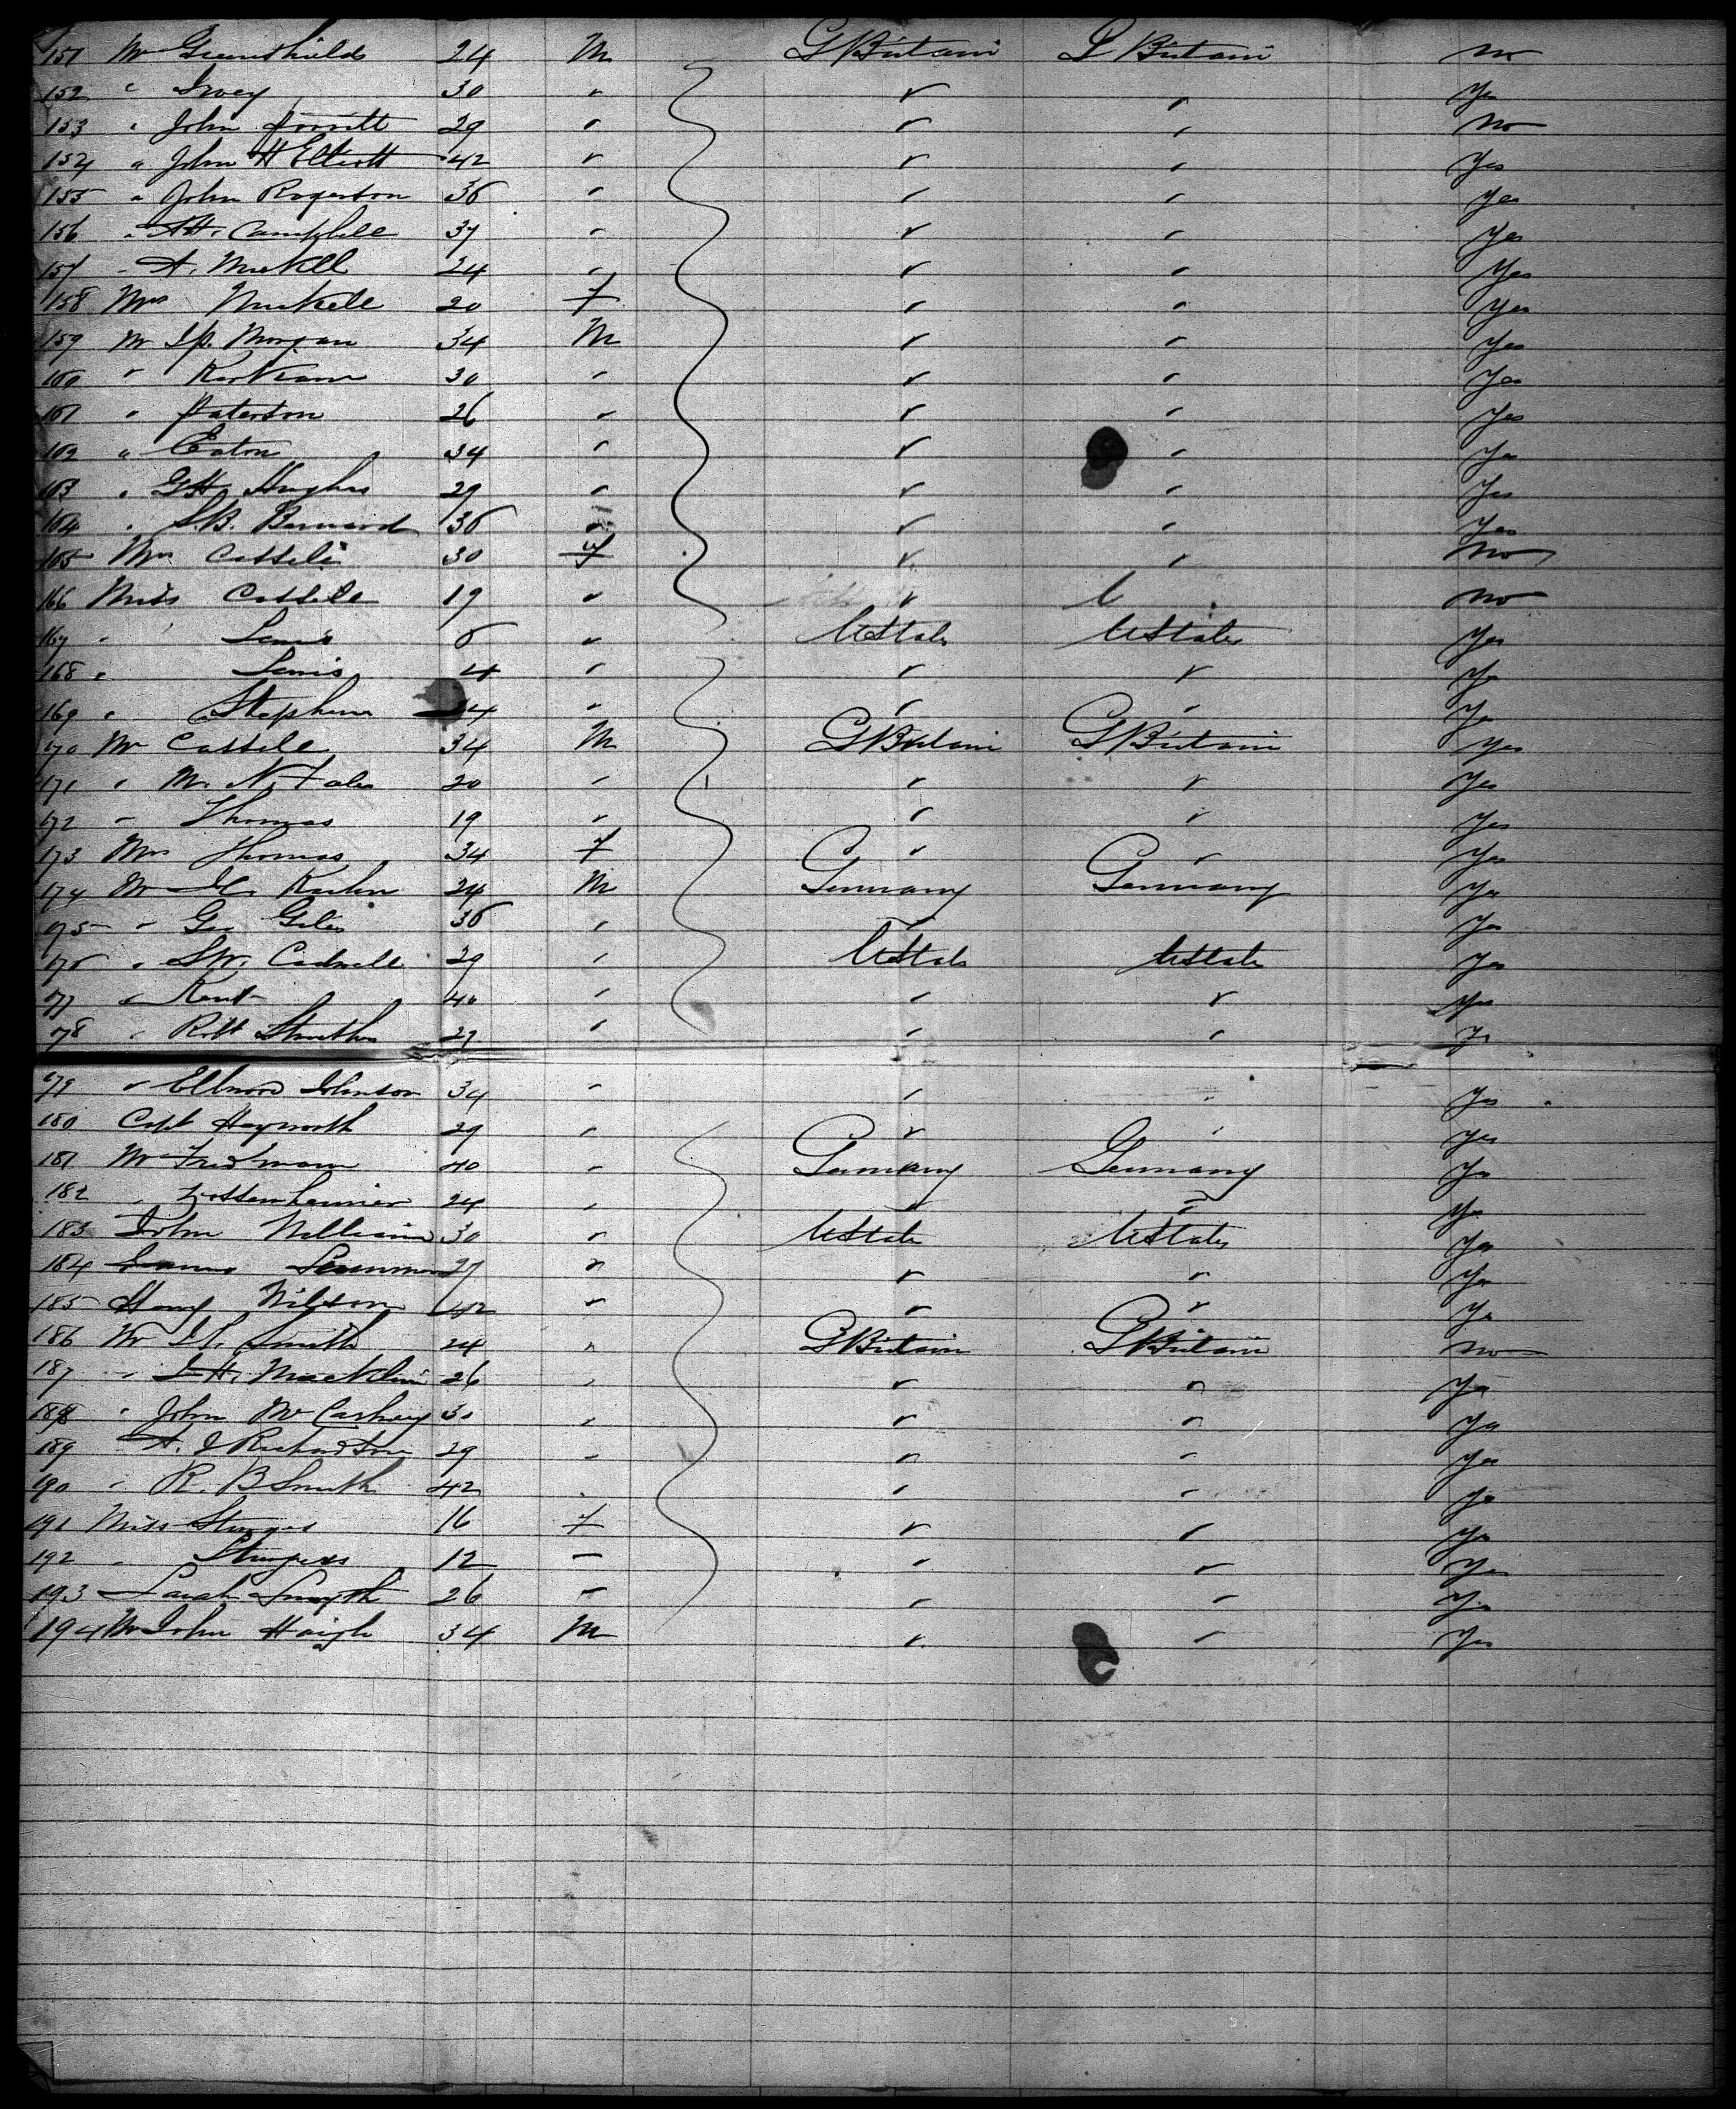 151 Mr Greenshields 24 M GBritain GBritain no
152 " Ivey 30 " " " Yes
153 " John 29 " " " no
154 " John H Elliott 42 " " " Yes
155 " John Rogerton 36 " " " Yes
156 " AH. Campbell 37 " " " Yes
157 " A. 24 " " " Yes
158 Mrs 20 f " " Yes
159 Mr Morgan 34 M " " Yes
160 " 30 " " " Yes
161 " Paterson 26 " " " Yes
162 " Eaton 34 " " " Yes
163 " GH Hughes 29 " " " Yes
164 " S.B. Bernard 36 " " " Yes
165 Mrs 30 f " " no
166 Miss 19 " " " no
167 " Lewis 6 " UStates UStates Yes
168 " Lewis 4 " " " Yes
169 " Stephens 24 " " " Yes
170 Mr 34 M GBritain GBritain Yes
171 " M. N. Fales 20 " " " Yes
172 " Thomas 19 " " " Yes
173 Mrs Thomas 34 f " " Yes
174 Mr Kuhn 24 M Germany Germany Yes
175 " Geo Giles 36 " " Yes
176 " SW. Cadwell 29 " UStates UStates Yes
177 " Kent 40 " " " Yes
178 " Robt Struthers 27 " " " Yes
179 " Ellwood Johnson 34 " " " Yes
180 Capt Hayworth 29 " " " Yes
181 Mr Friedmann 40 " Germany Germany Yes
182 " 24 " " " Yes
183 John William 30 " UStates UStates Yes
184 27 " " " Yes
185 Henry Wilson 42 " " " Yes
186 Mr Smith 24 " GBritain GBritain no
187 " Macklin 26 " " " Yes
188 " John McCarthey 30 " " " Yes
189 " A. J Richardson 29 " " " Yes
190 " R. B Smith 42 " " " Yes
191 Miss Sturges 16 f " " Yes
192 " Sturgess 12 " " " Yes
193 Sarah Smyth 26 " " " Yes
194 Mr John Haigh 34 M " " Yes